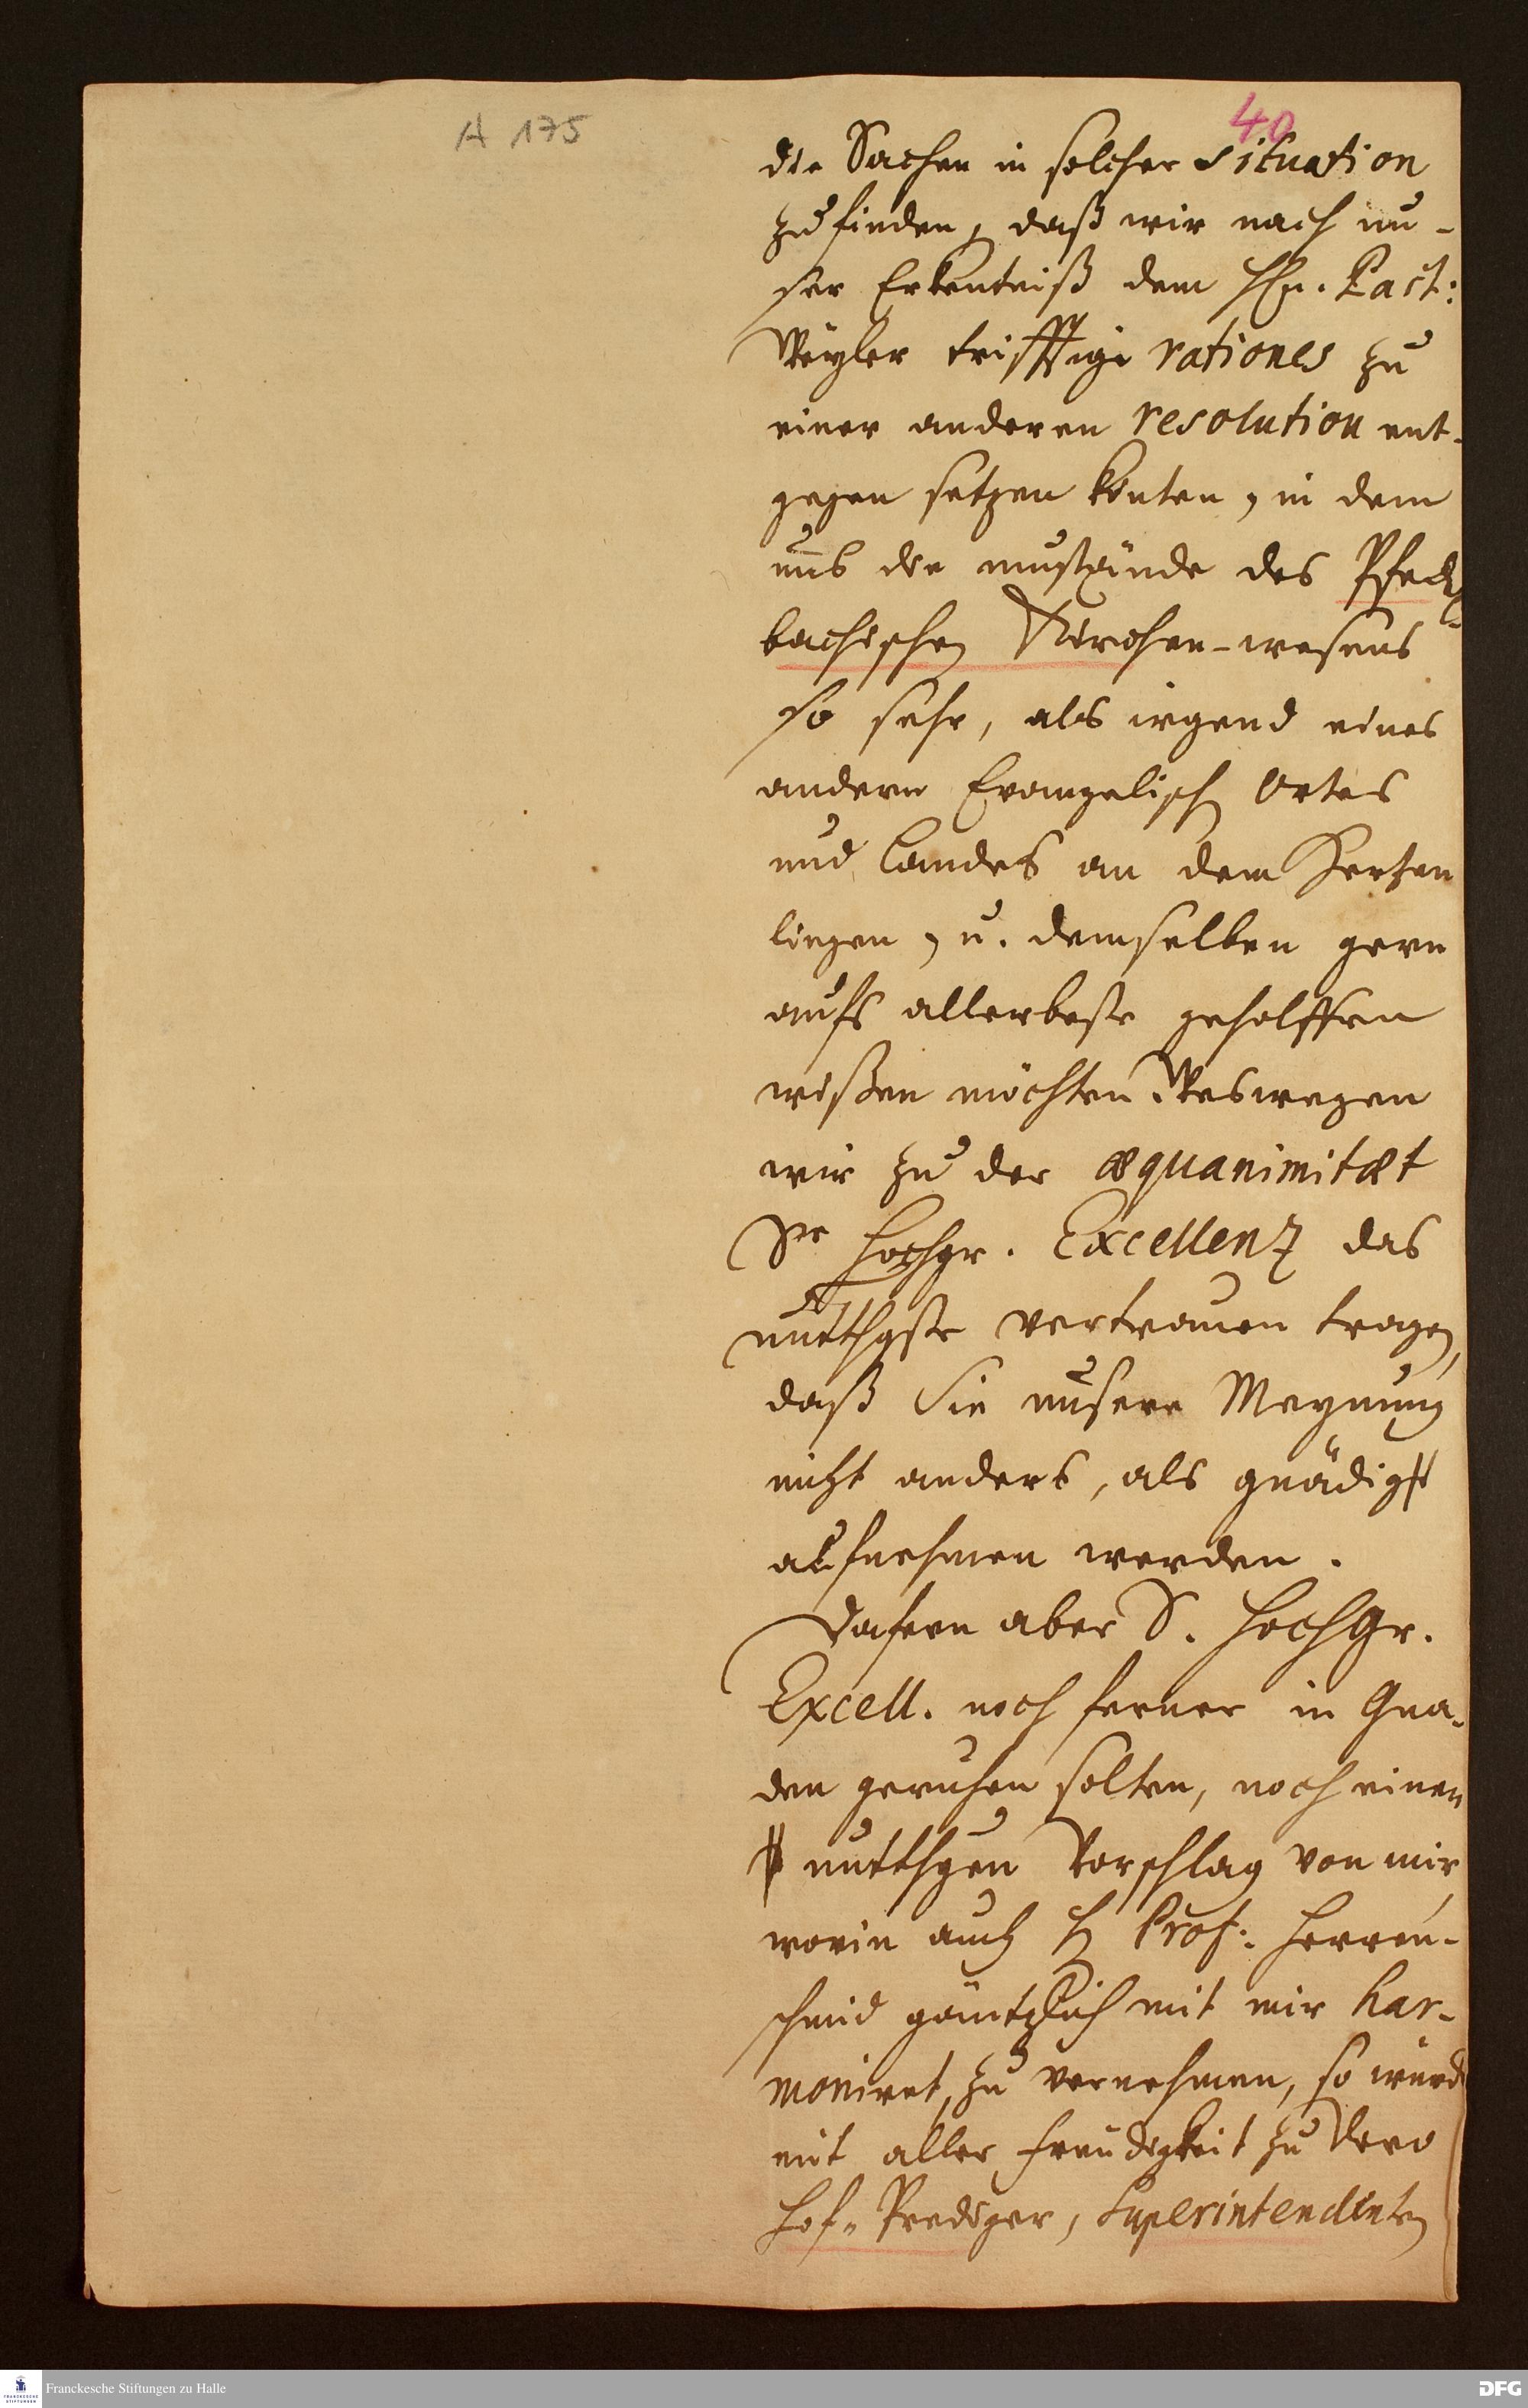 A 175
40
die Sachen in solcher situation
zu finden, daß wir nach un-
ser Erkentniß dem Hn. Past:
Wegler trifftige rationes zu
einer anderen resolution ent-
gegen setzen könten, in dem
uns die umstände des Pfedel
bachischen Kirchen-wesens
so sehr, als irgend eines
andern Evangelisch Ortes
und Landes an dem Hertzen
liegen, u. demselben gern
aufs allerbeste geholffen
wißen möchten. Deswegen
wir zu der æquanimitæt
Sr Hochgr. Excellenz das
untthgste vertrauen tragen,
daß Sie unsere Meynung
nicht anders, als gnädigst
aufnehmen werden.
Dafern aber S. HochGr.
Excell. noch ferner in Gna-
den geruhen solten, noch einen
untthgen Vorschlag von mir,
worin auch H Prof: Herren-
schmid gäntzlich mit mir har-
moniret, zu vernehmen, so würde
mit aller freudigkeit zu Dero
Hof-Prediger, Superintendenten
Franckesche Stiftungen zu Halle
FRANCKESCHE
STIFTUNGEN
DFG